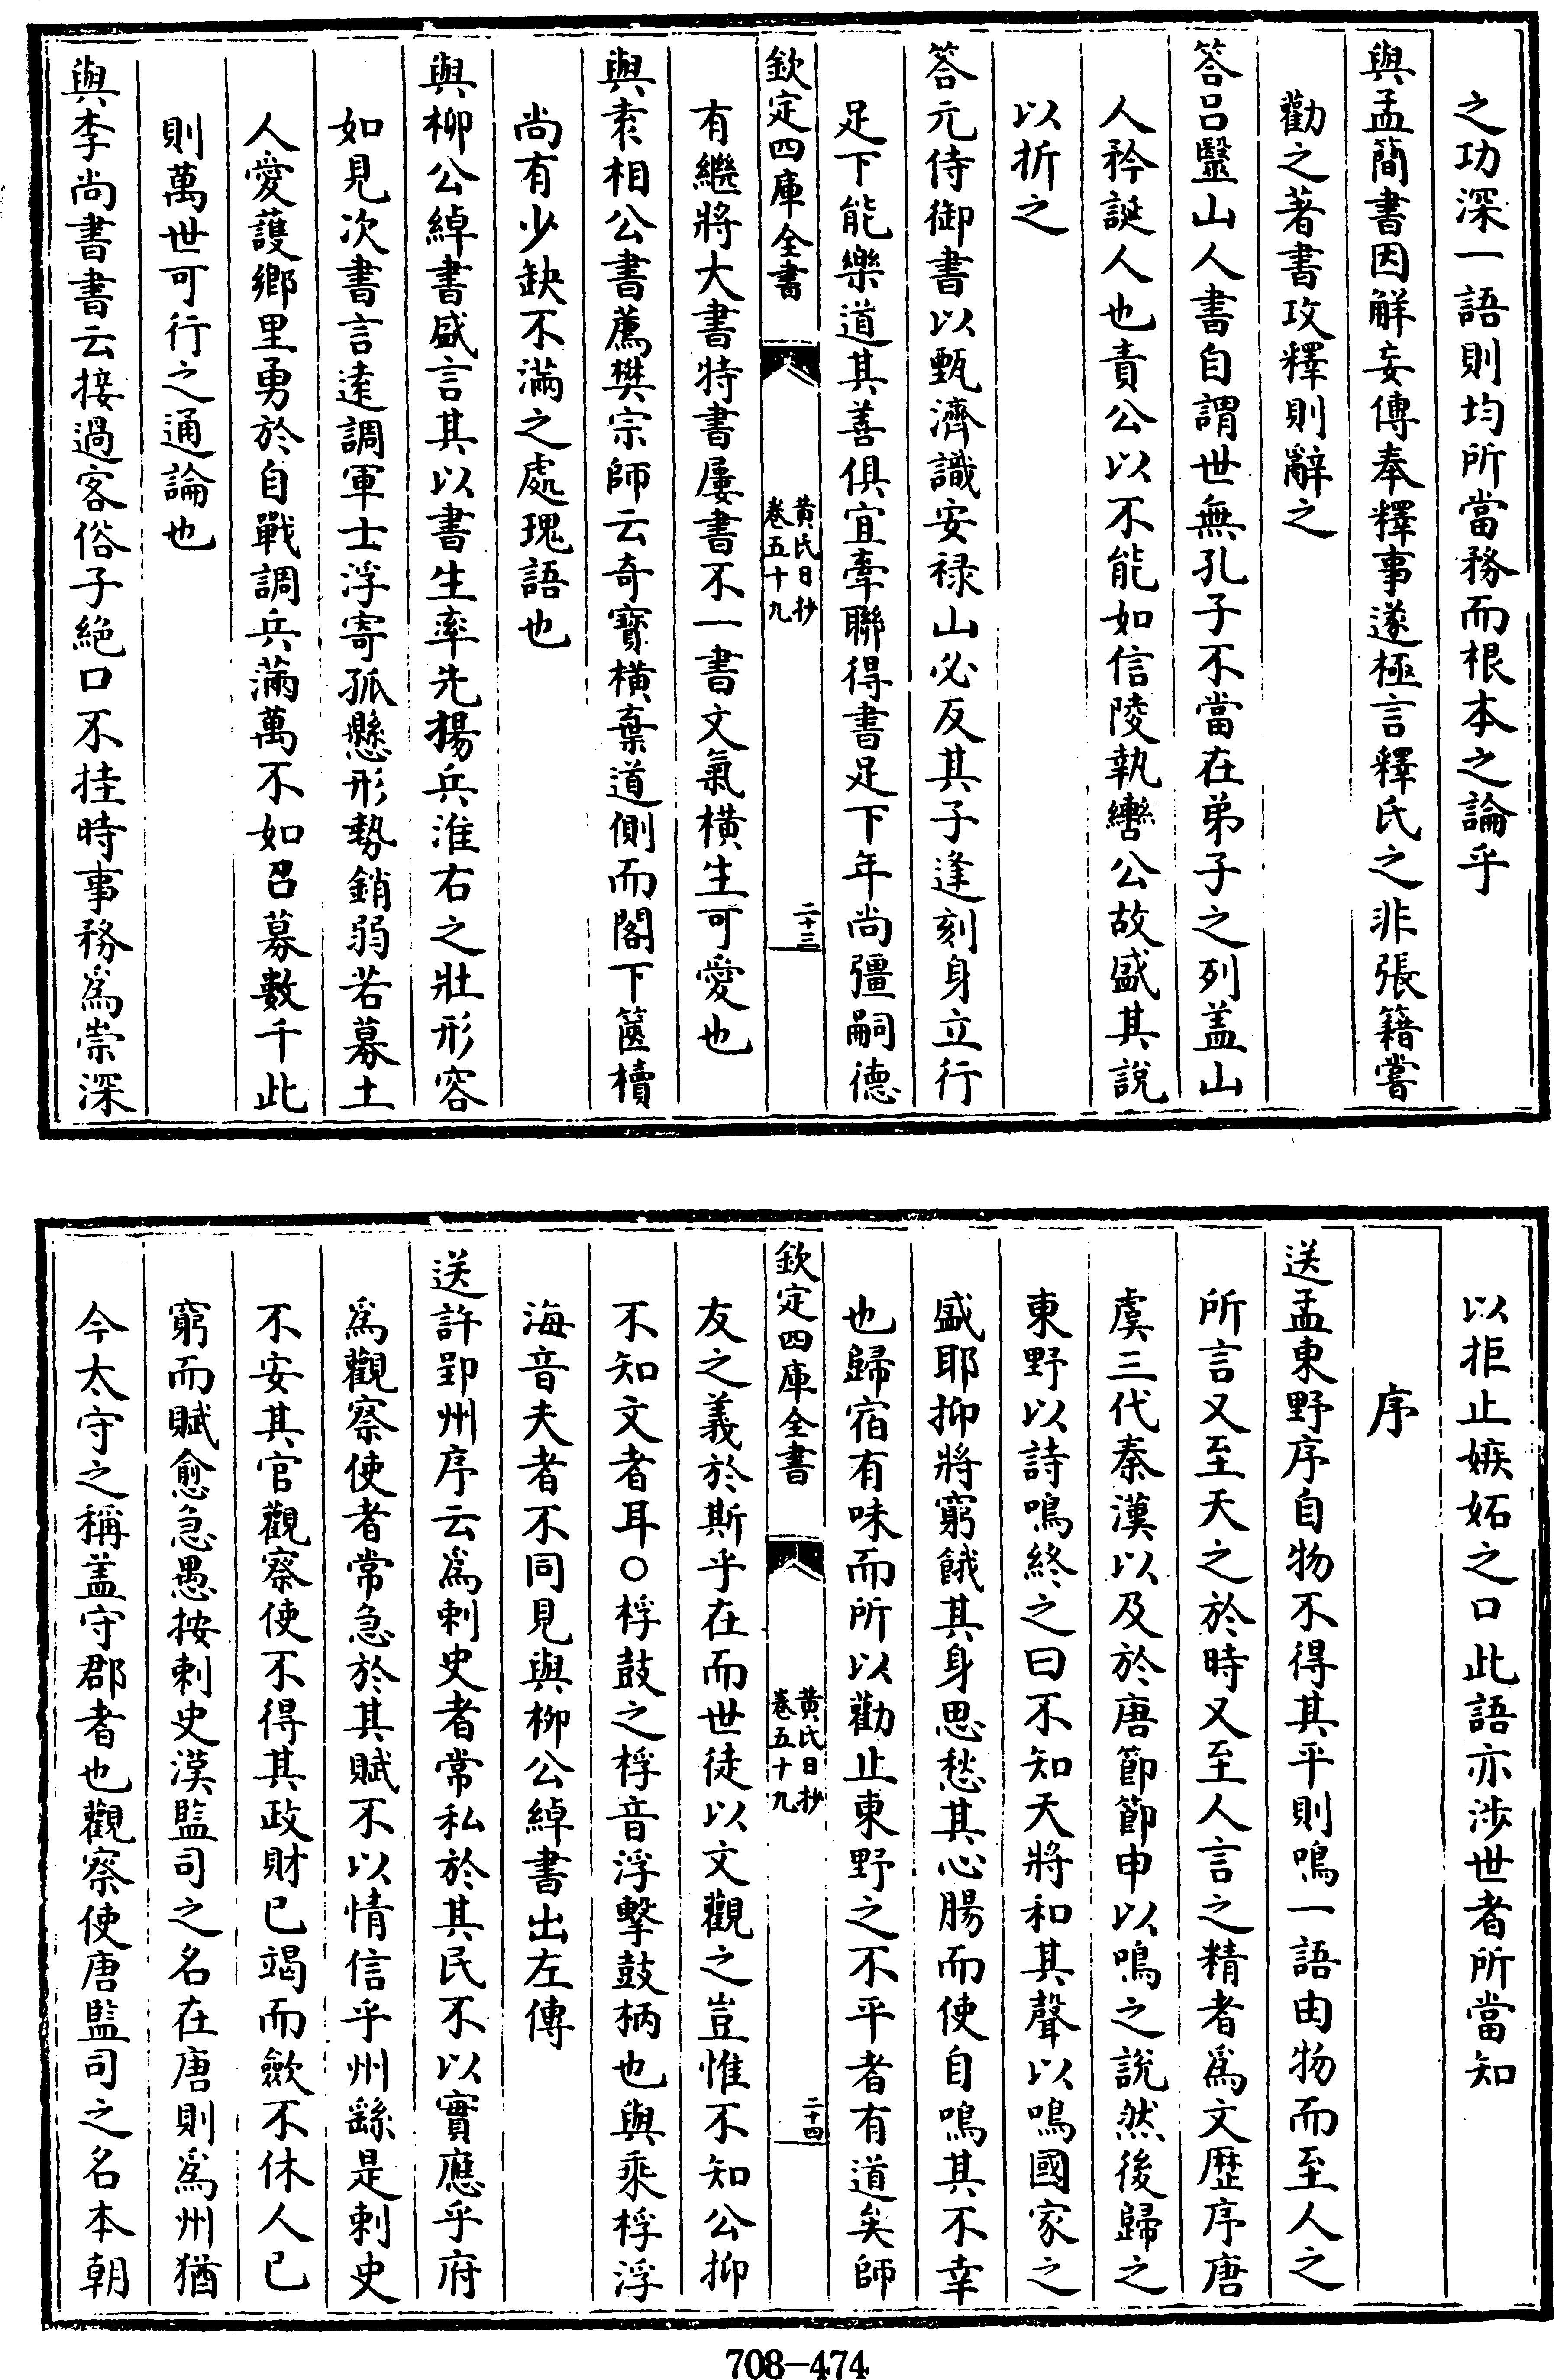 之功深一語則均所當務而根本之論乎
與孟簡書因解妄傳奉釋事遂極言釋氏之非張籍嘗
勸之著書攻釋則辭之
答呂毉山人書自謂世無孔子不當在弟子之列盖山
人矜誕人也責公以不能如信陵執轡公故盛其說
以折之
答元侍御書以甄濟識安禄山必反其子逢刻身立行
足下能樂道其善俱宜牽聯得書足下年尚彊嗣德
欽定四庫全書
黄氏日抄
卷五十九
二十三
有繼將大書特書屢書不一書文氣横生可愛也
與袁相公書薦樊宗師云奇寶横棄道側而閣下篋櫝
尚有少缺不滿之處瑰語也
與柳公綽書盛言其以書生率先揚兵淮右之壯形容
如見次書言逺調軍士浮寄孤懸形勢銷弱若募土
人愛護鄉里勇於自戰調兵滿萬不如召募數千此
則萬世可行之通論也
與李尚書書云接過客俗子絶口不挂時事務爲崇深
以拒止嫉妬之口此語亦涉世者所當知
序
送孟東野序自物不得其平則鳴一語由物而至人之
所言又至天之於時又至人言之精者爲文歴序唐
虞三代秦漢以及於唐節節申以鳴之說然後歸之
東野以詩鳴終之曰不知天將和其聲以鳴國家之
盛耶抑將窮餓其身思愁其心腸而使自鳴其不幸
也歸宿有味而所以勸止東野之不平者有道矣師
欽定四庫全書
黄氏日抄
卷五十九
二十四
友之義於斯乎在而世徒以文觀之豈惟不知公抑
不知文者耳○桴鼓之桴音浮擊鼓柄也與乘桴浮
海音夫者不同見與柳公綽書出左傳
送許郢州序云爲刺史者常私於其民不以實應乎府
爲觀察使者常急於其賦不以情信乎州繇是刺史
不安其官觀察使不得其政財已竭而歛不休人已
窮而賦愈急愚按刺史漢監司之名在唐則爲州猶
今太守之稱盖守郡者也觀察使唐監司之名本朝
708-474